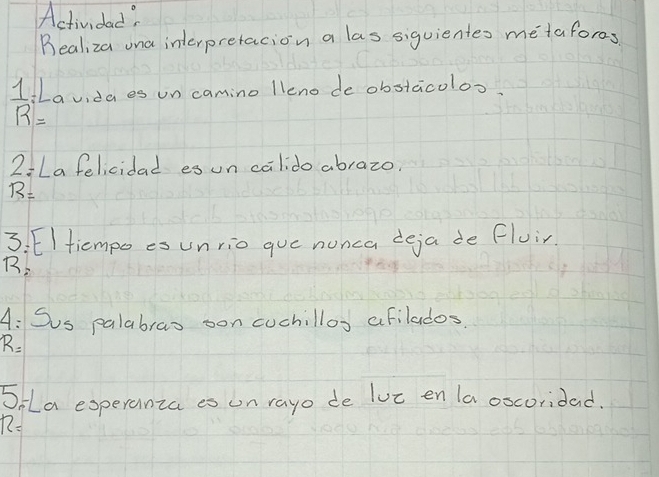 Actividad:
Realiza una interpretación a las siguientes metáforas.
1: La vida es un camino lleno de obstáculos.
R=
2: La felicidad es un cálido abrazo.
R=
3: El tiempo es un río que nunca deja de fluir.
R=
4: Sus palabras son cuchillos afilados.
R=
5: La esperanza es un rayo de luz en la oscuridad.
R=